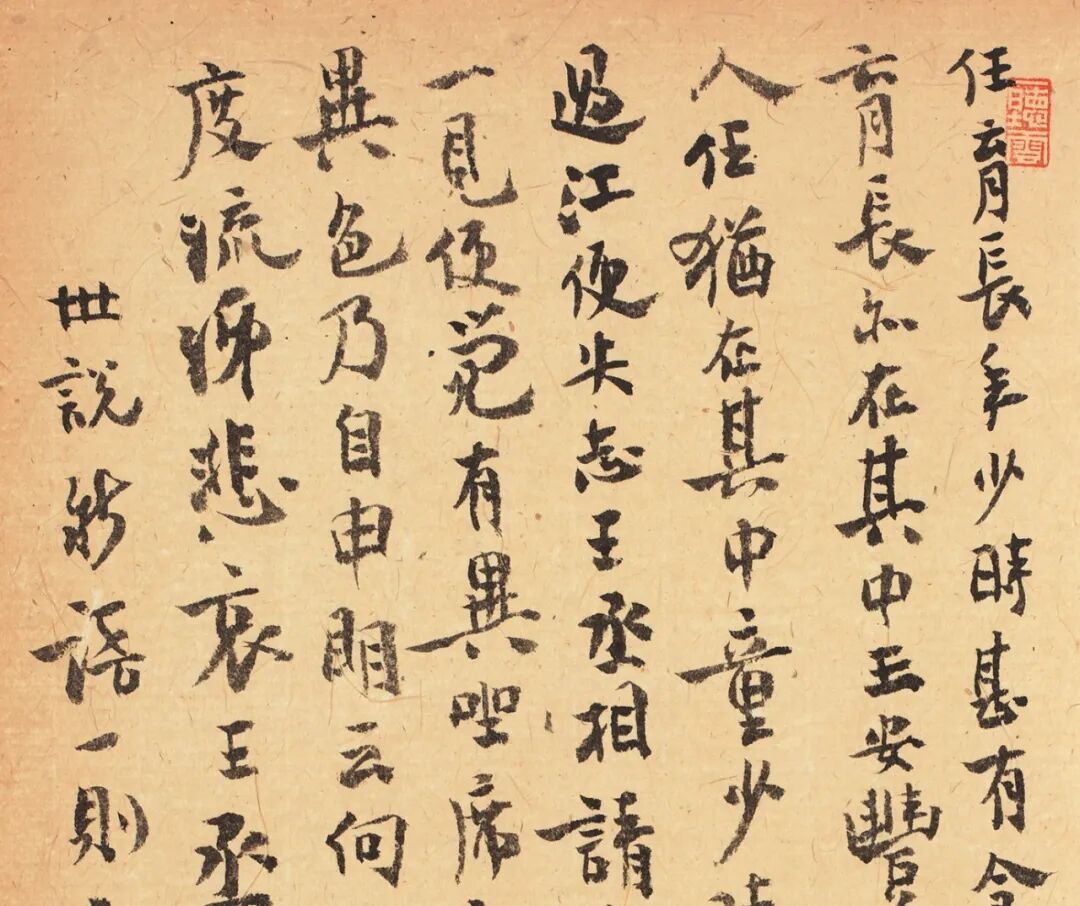 任育長年少時甚有令
育長亦在其中王安豐
人任猶在其中童少
過江便失志王丞相請
一見便覚有異坐席
異色乃自申明云向
度流涕悲哀王丞
世說新語一則